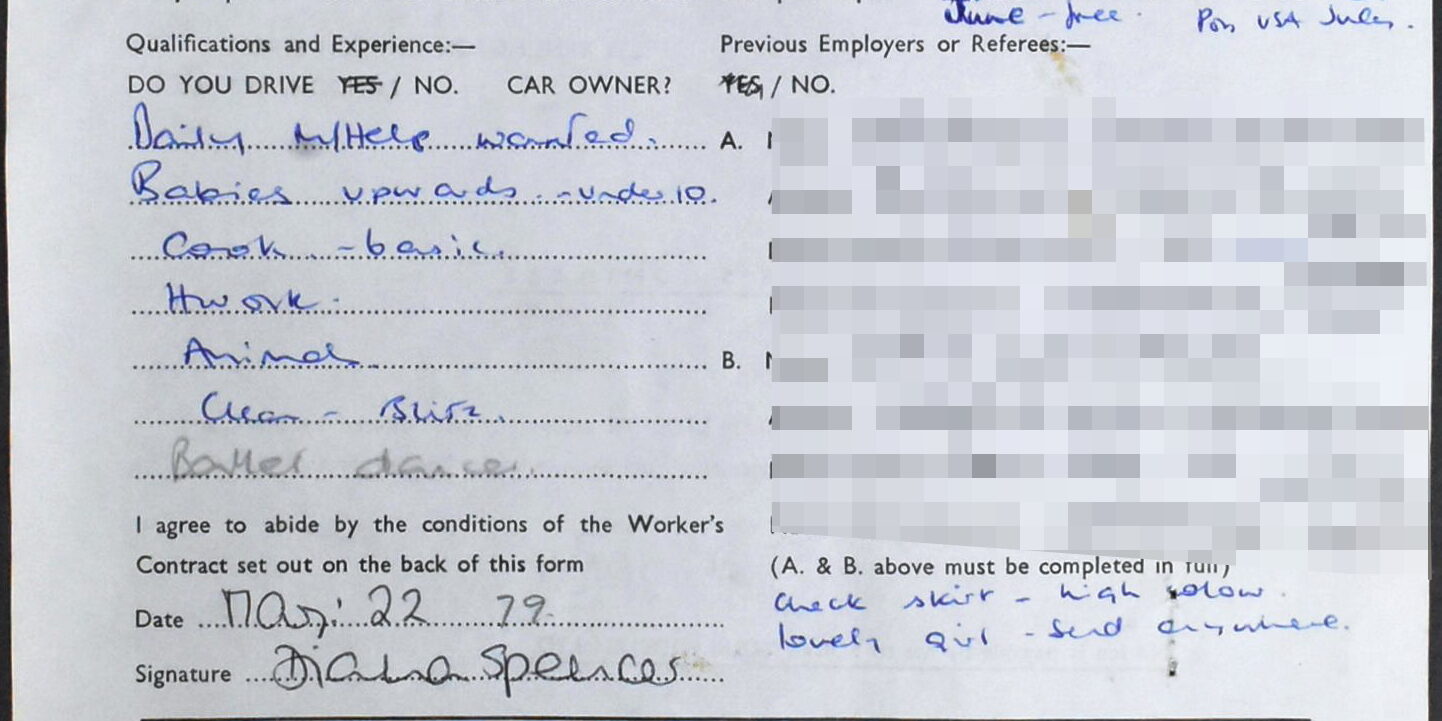 June - free. Poss USA July.
Qualifications and Experience:— Previous Employers or Referees:—
DO YOU DRIVE YES / NO. CAR OWNER? YES / NO.
Daily M/Help wanted. A.
Babies upwards - under 10.
Cook - basic.
Hwork.
Animals B.
Clean - Blitz.
Ballet dancer.
I agree to abide by the conditions of the Worker's
Contract set out on the back of this form
(A. & B. above must be completed in full)
Date May: 22 79.
check skirt - high colour.
lovely girl - send anywhere.
Signature Diana Spencer